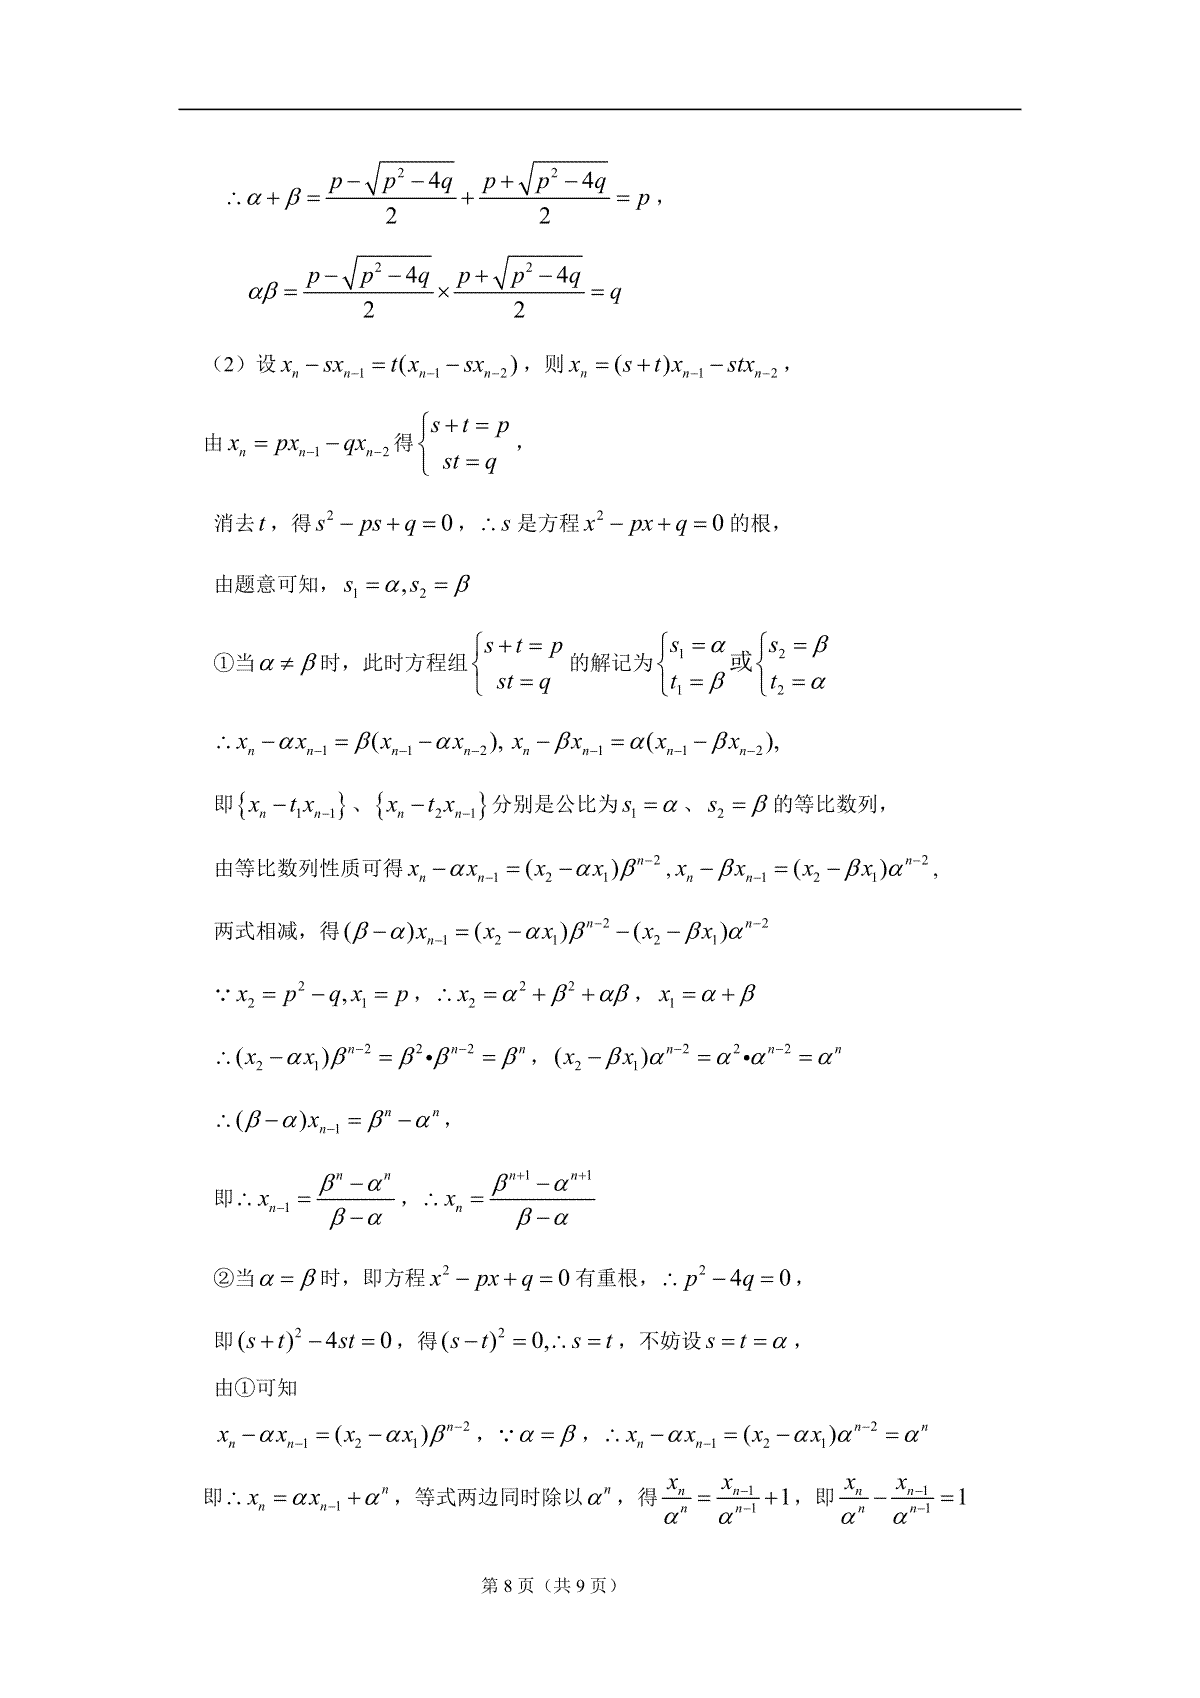 ∴α + β = (p − √(p² − 4q))/2 + (p + √(p² − 4q))/2 = p，
αβ = (p − √(p² − 4q))/2 × (p + √(p² − 4q))/2 = q
（2）设 xₙ − sxₙ₋₁ = t(xₙ₋₁ − sxₙ₋₂)，则 xₙ = (s + t)xₙ₋₁ − stxₙ₋₂，
由 xₙ = pxₙ₋₁ − qxₙ₋₂ 得 { s + t = p, st = q ，
消去 t，得 s² − ps + q = 0，∴ s 是方程 x² − px + q = 0 的根，
由题意可知，s₁ = α, s₂ = β
①当 α ≠ β 时，此时方程组 { s + t = p, st = q 的解记为 { s₁ = α, t₁ = β 或 { s₂ = β, t₂ = α
∴ xₙ − αxₙ₋₁ = β(xₙ₋₁ − αxₙ₋₂), xₙ − βxₙ₋₁ = α(xₙ₋₁ − βxₙ₋₂),
即{xₙ − t₁xₙ₋₁}、{xₙ − t₂xₙ₋₁}分别是公比为 s₁ = α、s₂ = β 的等比数列，
由等比数列性质可得 xₙ − αxₙ₋₁ = (x₂ − αx₁)βⁿ⁻², xₙ − βxₙ₋₁ = (x₂ − βx₁)αⁿ⁻²,
两式相减，得 (β − α)xₙ₋₁ = (x₂ − αx₁)βⁿ⁻² − (x₂ − βx₁)αⁿ⁻²
∵ x₂ = p² − q, x₁ = p，∴ x₂ = α² + β² + αβ，x₁ = α + β
∴(x₂ − αx₁)βⁿ⁻² = β²•βⁿ⁻² = βⁿ，(x₂ − βx₁)αⁿ⁻² = α²•αⁿ⁻² = αⁿ
∴(β − α)xₙ₋₁ = βⁿ − αⁿ，
即∴ xₙ₋₁ = (βⁿ − αⁿ)/(β − α)，∴ xₙ = (βⁿ⁺¹ − αⁿ⁺¹)/(β − α)
②当 α = β 时，即方程 x² − px + q = 0 有重根，∴ p² − 4q = 0，
即 (s + t)² − 4st = 0，得 (s − t)² = 0,∴ s = t，不妨设 s = t = α，
由①可知
xₙ − αxₙ₋₁ = (x₂ − αx₁)βⁿ⁻²，∵ α = β，∴ xₙ − αxₙ₋₁ = (x₂ − αx₁)αⁿ⁻² = αⁿ
即∴ xₙ = αxₙ₋₁ + αⁿ，等式两边同时除以 αⁿ，得 xₙ/αⁿ = xₙ₋₁/αⁿ⁻¹ + 1，即 xₙ/αⁿ − xₙ₋₁/αⁿ⁻¹ = 1
第 8 页（共 9 页）